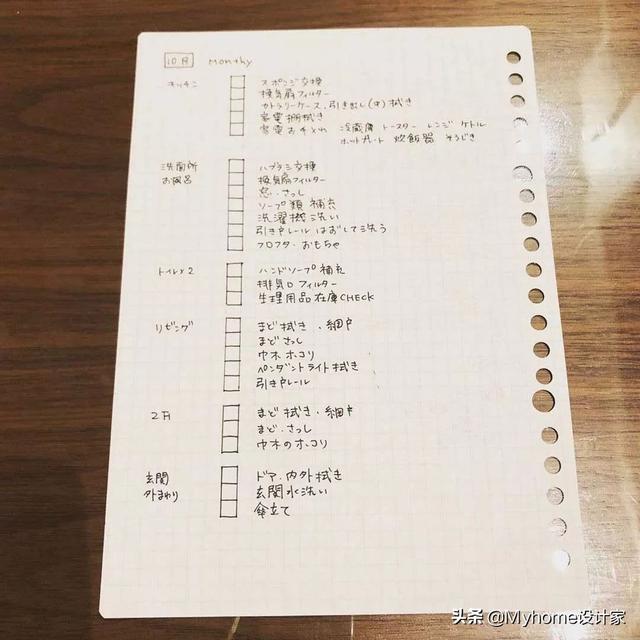 10月 Monthy
キッチン スポンジ交換
換気扇フィルター
カトラリーケース、引き出し(中)拭き
家電棚拭き
家電お手入れ 冷蔵庫 トースター レンジ ケトル
炊飯器 そうじき
洗面所 ハブラシ交換
お風呂 換気扇フィルター
窓・さっし
ソープ類 補充
洗濯機洗い
引き戸レール はずして洗う
フロフタ・おもちゃ
トイレ×2 ハンドソープ補充
排気口フィルター
生理用品在庫CHECK
リビング まど拭き・網戸
まどさっし
巾木ホコリ
ペンダントライト拭き
引き戸レール
2F まど拭き・網戸
まど・さっし
巾木のホコリ
玄関 ドア・内外拭き
外まわり 玄関水洗い
傘立て
头条 @Myhome设计家